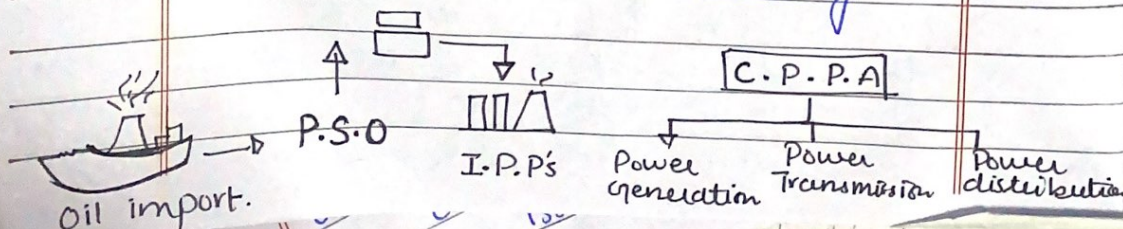 C.P.P.A
P.S.O
I.P.P's
Power Generation
Power Transmission
Power distribution
Oil import.